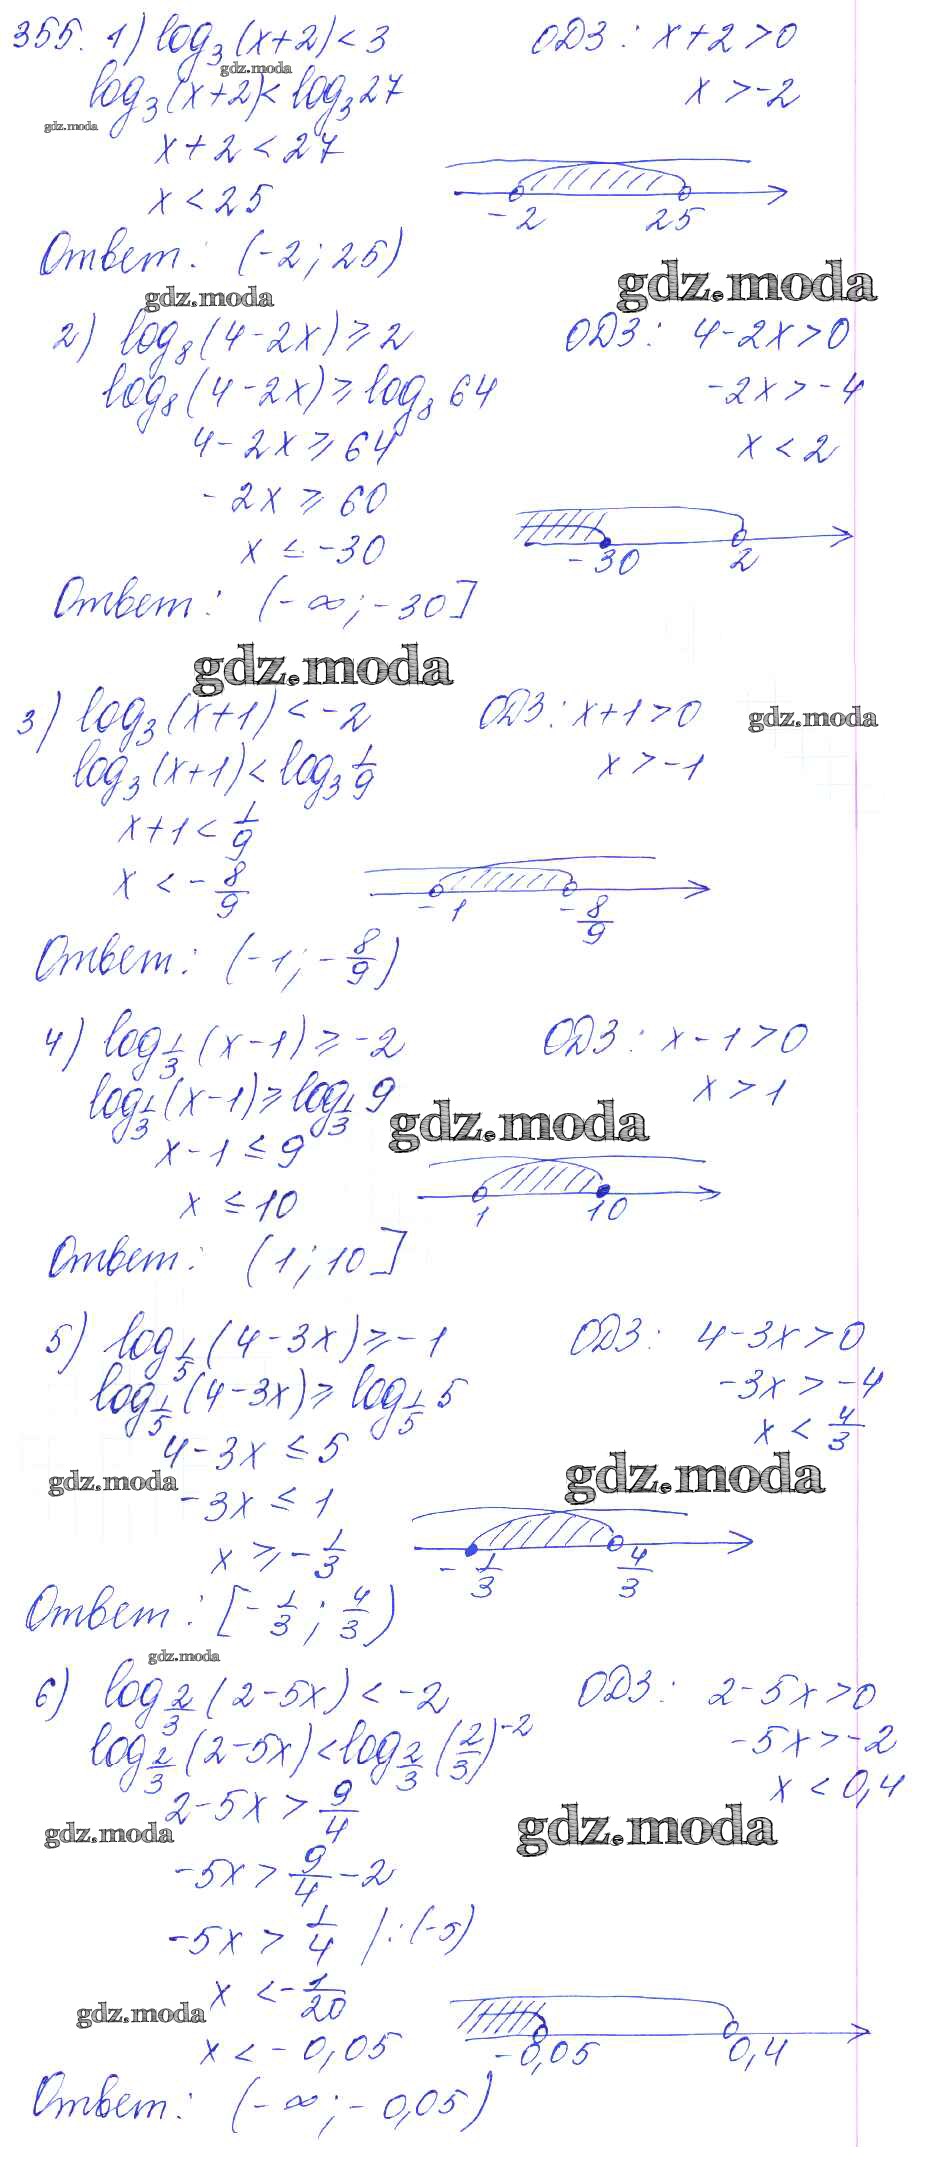 355. 1) log₃(x+2) < 3     ОДЗ: x+2>0
gdz.moda
log₃(x+2) < log₃27     x > -2
gdz.moda
x+2 < 27
x < 25
-2     25
Ответ: (-2; 25)
gdz.moda
gdz.moda
2) log₈(4-2x) ⩾ 2     ОДЗ: 4-2x>0
log₈(4-2x) ⩾ log₈64     -2x > -4
4-2x ⩾ 64     x < 2
-2x ⩾ 60
x ≤ -30     -30     2
Ответ: (-∞; -30]
gdz.moda
3) log₃(x+1) < -2     ОДЗ: x+1>0
gdz.moda
log₃(x+1) < log₃ 1/9     x > -1
x+1 < 1/9
x < -8/9     -1     -8/9
Ответ: (-1; -8/9)
4) log_{1/3}(x-1) ⩾ -2     ОДЗ: x-1>0
log_{1/3}(x-1) ⩾ log_{1/3} 9     x > 1
gdz.moda
x-1 ≤ 9
x ≤ 10     1     10
Ответ: (1; 10]
5) log_{1/5}(4-3x) ⩾ -1     ОДЗ: 4-3x>0
log_{1/5}(4-3x) ⩾ log_{1/5} 5     -3x > -4
4-3x ≤ 5     x < 4/3
gdz.moda
gdz.moda
-3x ≤ 1
x ⩾ -1/3     -1/3     4/3
Ответ: [-1/3; 4/3)
gdz.moda
6) log_{2/3}(2-5x) < -2     ОДЗ: 2-5x>0
log_{2/3}(2-5x) < log_{2/3}(2/3)^{-2}     -5x > -2
2-5x > 9/4     x < 0,4
gdz.moda
gdz.moda
-5x > 9/4 - 2
-5x > 1/4 |:(-5)
x < -1/20
gdz.moda
x < -0,05     -0,05     0,4
Ответ: (-∞; -0,05)